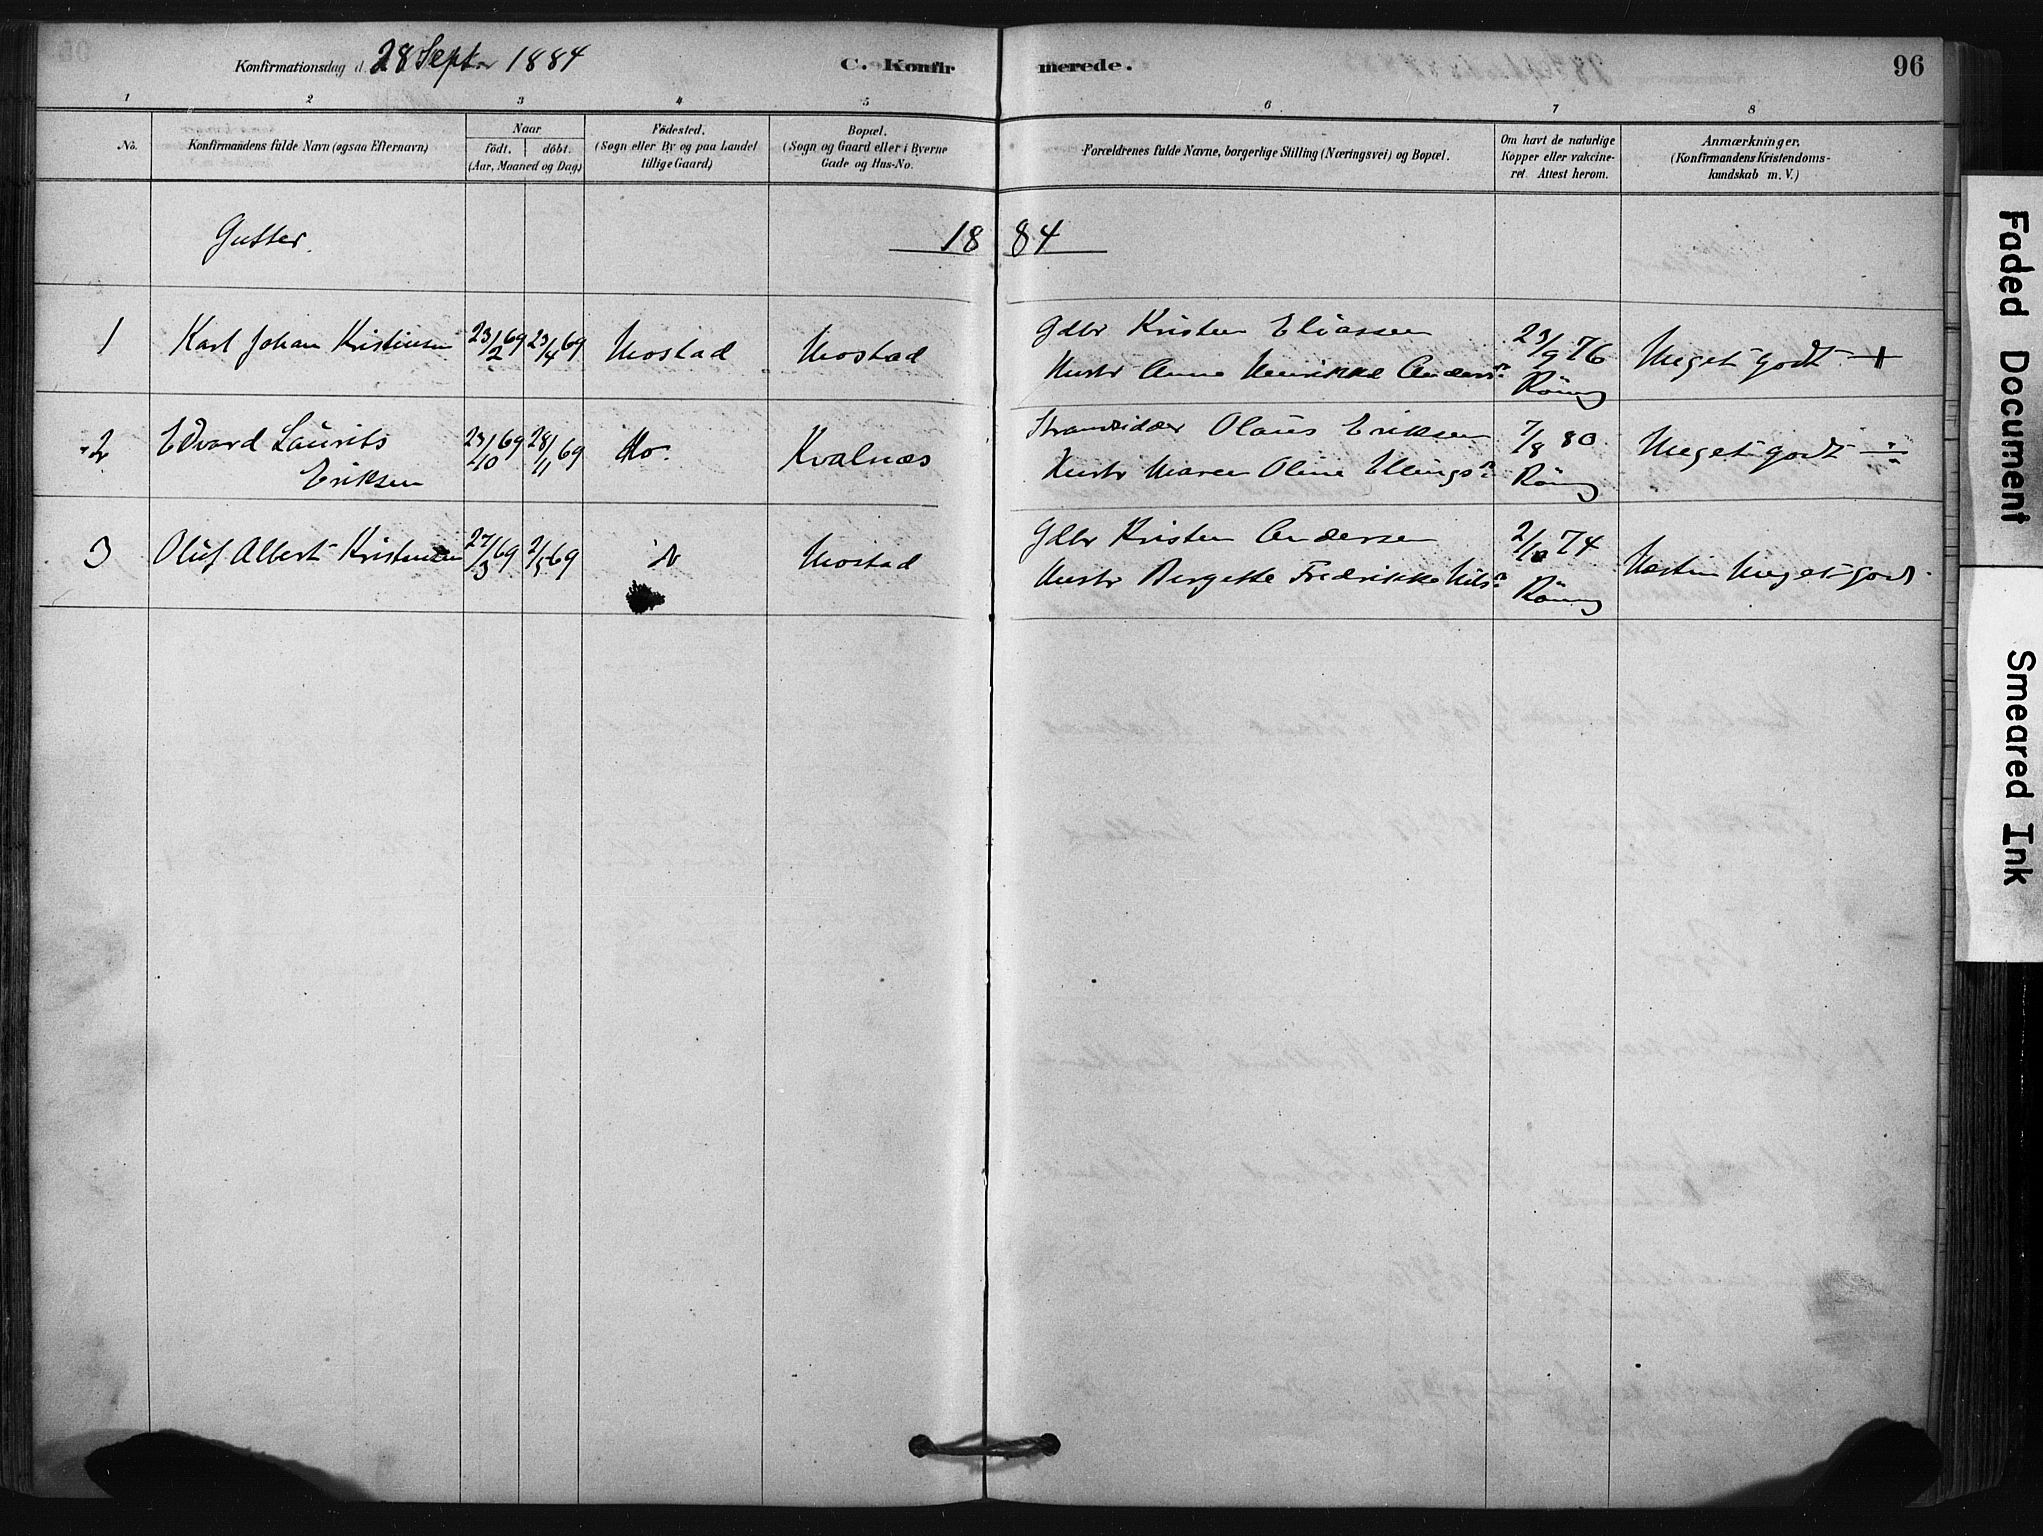 Konfirmationsdag d. 28 Septr 1884
C. Konfirmerede.
96
1 2 3 4 5 6 7 8
No.
Konfirmandens fulde Navn (ogsaa Efternavn)
Naar
födt. döbt.
(Aar, Maaned og Dag)
Födested.
(Sogn eller By og paa Landet
tillige Gaard)
Bopæl.
(Sogn og Gaard eller i Byerne
Gade og Hus-No.
Forældrenes fulde Navne, borgerlige Stilling (Næringsvei) og Bopæl.
Om havt de naturlige
Kopper eller vakcine-
ret. Attest herom.
Anmærkninger.
(Konfirmandens Kristendoms-
kundskab m. V.)
Gutter.
1884
1 Karl Johan Kristensen 23/2 69 23/4 69 Mostad Mostad
Gdbr Kristen Eliassen
Hustr Anne Henrikke Andersn
23/9 76
Röing
Meget godt +
2 Edvard Laurits
Eriksen
23/10 69 28/11 69 Mo. Kvalnæs
Strandsidder Olaus Eriksen
Hustr Maren Oline Ellingsn
7/8 80
Röing
Meget godt ÷
3 Oluf Albert Kristensen 27/3 69 2/5 69 Mostad
Gdbr Kristen Andersen
Hustr Bergette Fredrikke Nilsn
2/10 74
Röing
Næsten Meget godt
Faded Document
Smeared Ink